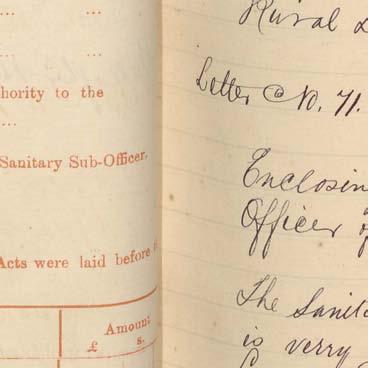 ... ...
... ...
hority to the
...
Sanitary Sub-Officer.
Acts were laid before
Amount
£ s.
Rural
Letter No. 71.
Enclosin
Officer
The Sanit
is verry